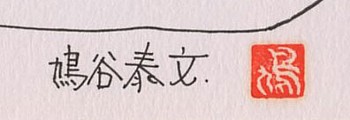 鳩谷泰文.
鳩